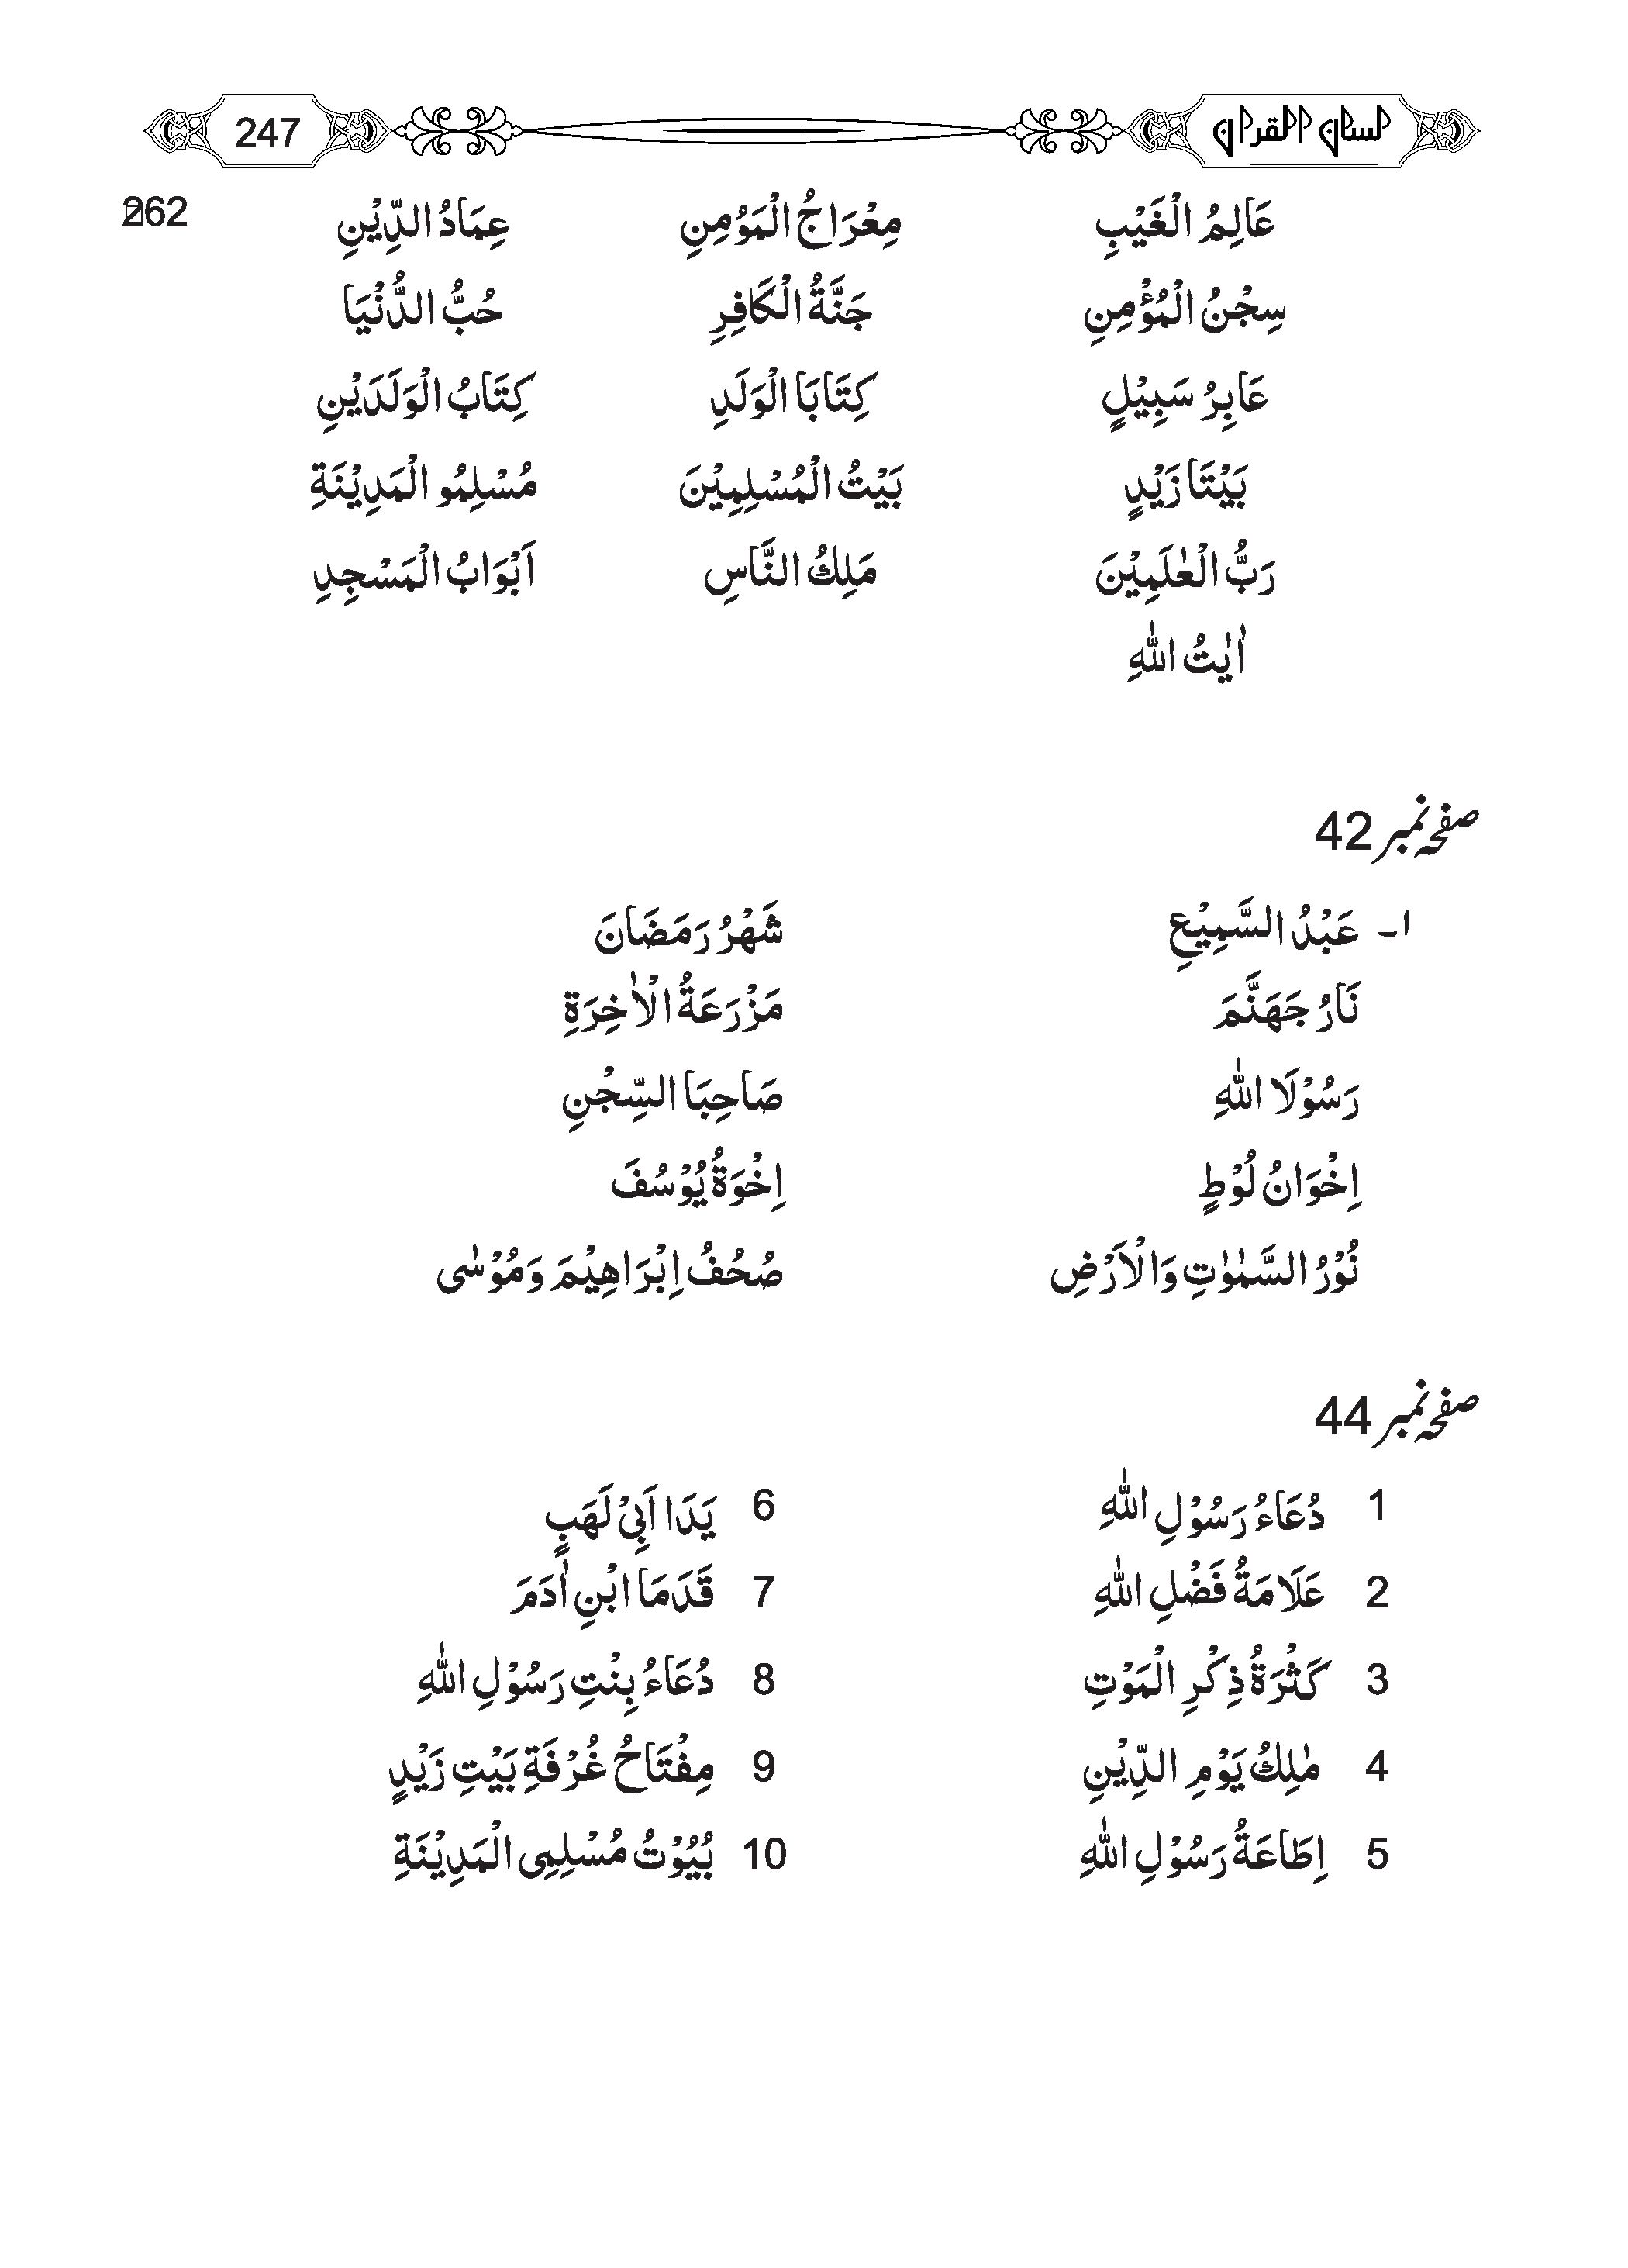 لسان القرآن 247
عَالِمُ الْغَيْبِ مِعْرَاجُ الْمَوُمِنِ عِمَادُ الدِّيْنِ 262
سِجْنُ الْمُؤْمِنِ جَنَّةُ الْكَافِرِ حُبُّ الدُّنْيَا
عَابِرُ سَبِيْلٍ كِتَابَا الْوَلَدِ كِتَابُ الْوَلَدَيْنِ
بَيْتَا زَيْدٍ بَيْتُ الْمُسْلِمِيْنَ مُسْلِمُو الْمَدِيْنَةِ
رَبُّ الْعٰلَمِيْنَ مَلِكُ النَّاسِ اَبْوَابُ الْمَسْجِدِ
اٰيٰتُ اللّٰهِ
صفحہ نمبر 42
۱۔ عَبْدُ السَّمِيْعِ شَهْرُ رَمَضَانَ
نَارُ جَهَنَّمَ مَزْرَعَةُ الْاٰخِرَةِ
رَسُوْلَا اللّٰهِ صَاحِبَا السِّجْنِ
اِخْوَانُ لُوْطٍ اِخْوَةُ يُوْسُفَ
نُوْرُ السَّمٰوٰتِ وَالْاَرْضِ صُحُفُ اِبْرَاهِيْمَ وَمُوْسٰى
صفحہ نمبر 44
1 دُعَاءُ رَسُوْلِ اللّٰهِ 6 يَدَا اَبِيْ لَهَبٍ
2 عَلَامَةُ فَضْلِ اللّٰهِ 7 قَدَمَا ابْنِ اٰدَمَ
3 كَثْرَةُ ذِكْرِ الْمَوْتِ 8 دُعَاءُ بِنْتِ رَسُوْلِ اللّٰهِ
4 مٰلِكُ يَوْمِ الدِّيْنِ 9 مِفْتَاحُ غُرْفَةِ بَيْتِ زَيْدٍ
5 اِطَاعَةُ رَسُوْلِ اللّٰهِ 10 بُيُوْتُ مُسْلِمِى الْمَدِيْنَةِ